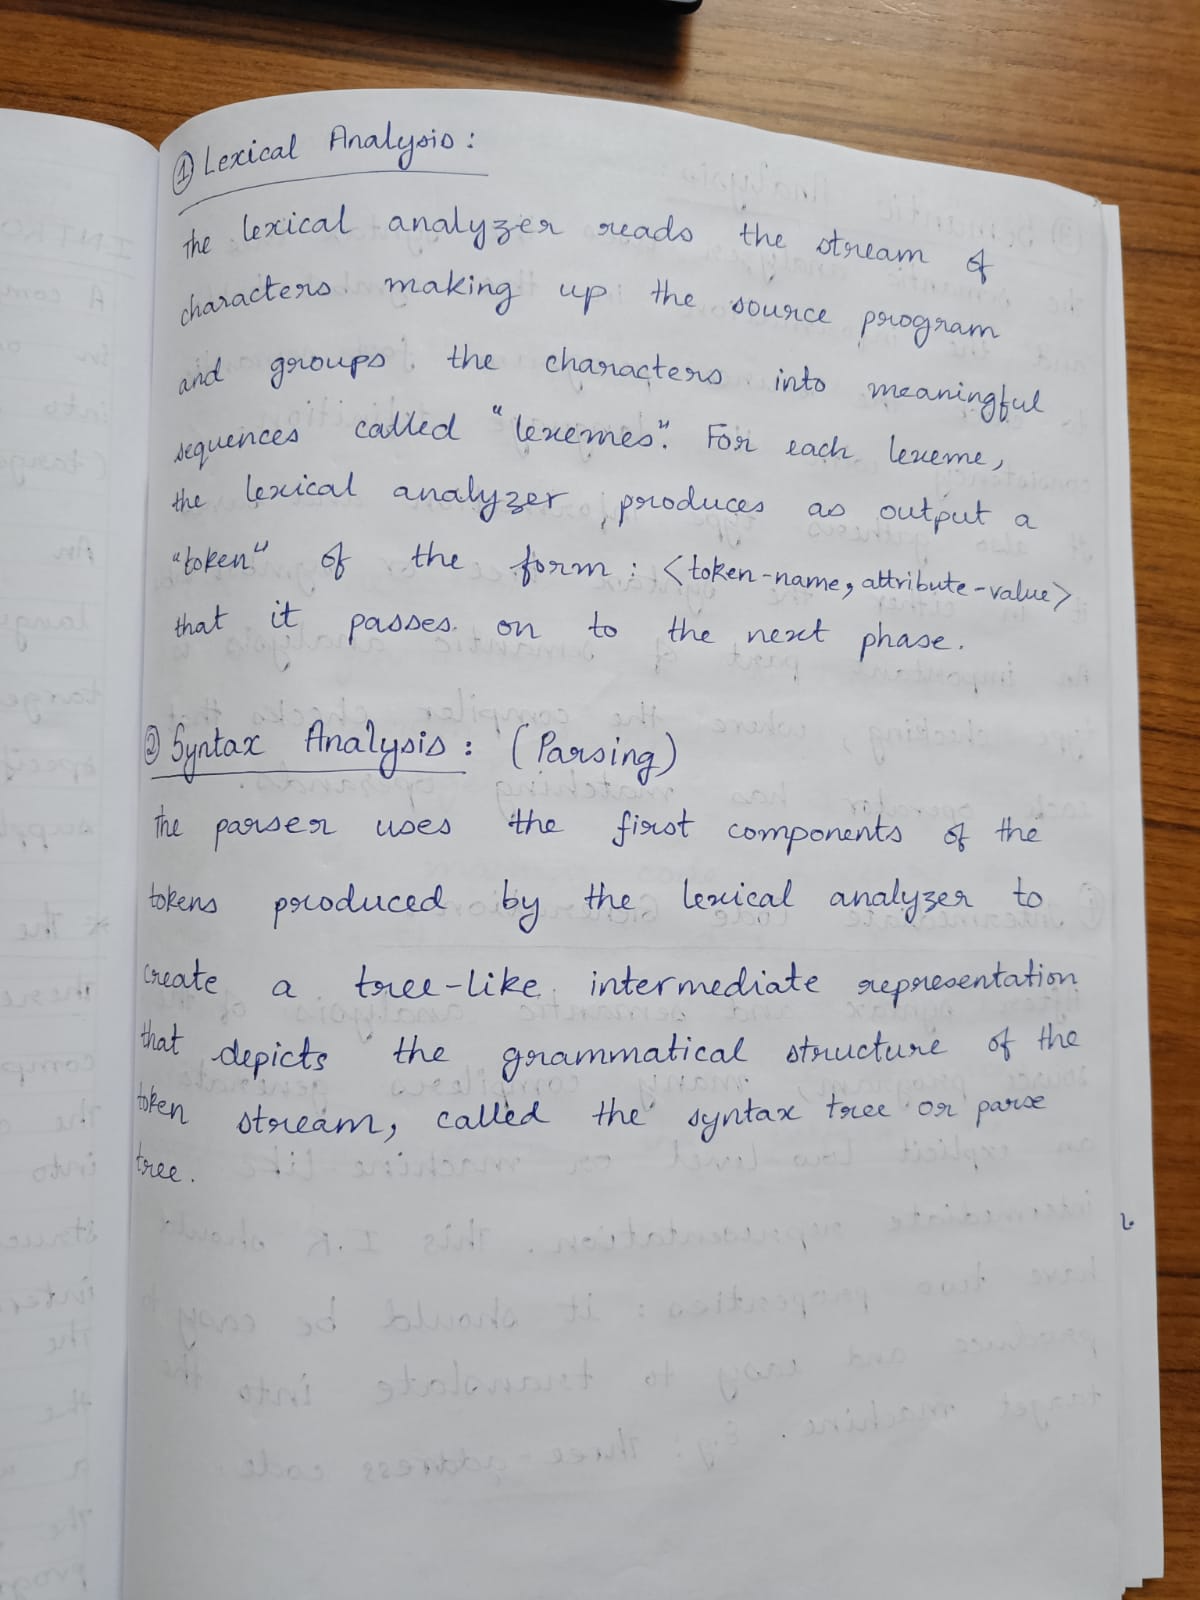 ① Lexical Analysis :
The lexical analyzer reads the stream of
characters making up the source program
and groups the characters into meaningful
sequences called "lexemes". For each lexeme,
the lexical analyzer produces as output a
"token" of the form : <token-name, attribute-value>
that it passes on to the next phase.
② Syntax Analysis : (Parsing)
The parser uses the first components of the
tokens produced by the lexical analyzer to
create a tree-like intermediate representation
that depicts the grammatical structure of the
token stream, called the syntax tree or parse
tree.